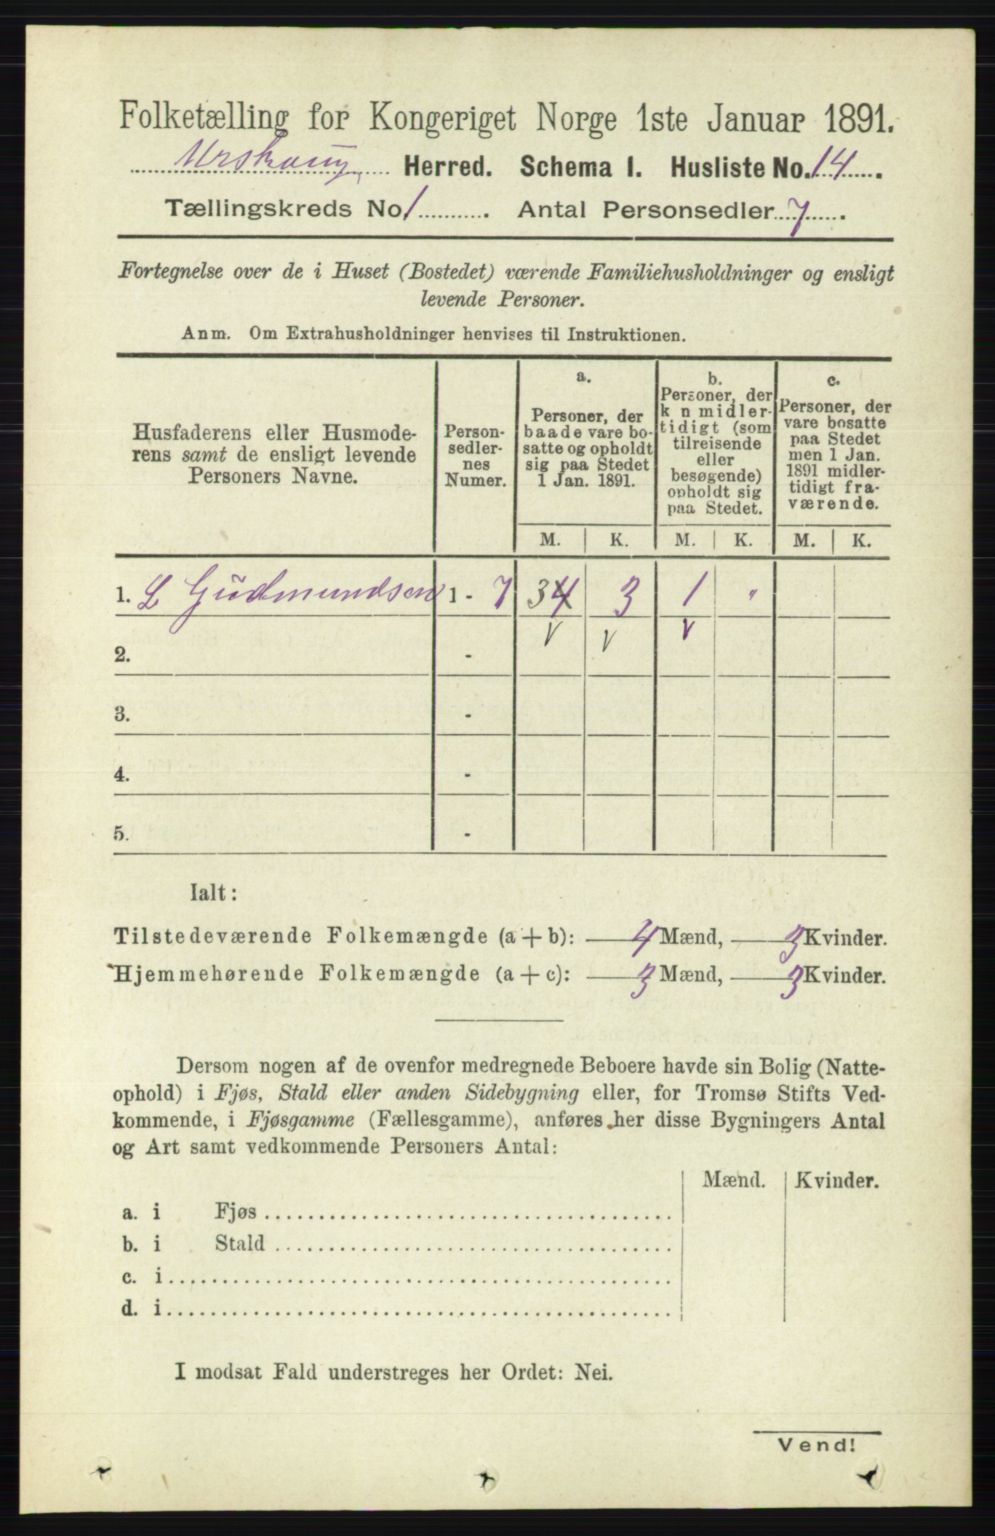 Folketælling for Kongeriget Norge 1ste Januar 1891.
Urskoug Herred. Schema I. Husliste No. 14.
Tællingskreds No 1. Antal Personsedler 7.
Fortegnelse over de i Huset (Bostedet) værende Familiehusholdninger og ensligt
levende Personer.
Anm. Om Extrahusholdninger henvises til Instruktionen.
Husfaderens eller Husmode-
rens samt de ensligt levende
Personers Navne.
Person-
sedler-
nes
Numer.
a.
Personer, der
baade vare bo-
satte og opholdt
sig paa Stedet
1 Jan. 1891.
b.
Personer, der
k n midler-
tidigt (som
tilreisende
eller
besøgende)
opholdt sig
paa Stedet.
c.
Personer, der
vare bosatte
paa Stedet
men 1 Jan.
1891 midler-
tidigt fra-
værende.
M. K. M. K. M. K.
1. L Gudmundsen 1 - 7 3 4 3 1 "
2. -
3. -
4. -
5. -
Ialt:
Tilstedeværende Folkemængde (a + b): 4 Mænd, 3 Kvinder.
Hjemmehørende Folkemængde (a + c): 3 Mænd, 3 Kvinder.
Dersom nogen af de ovenfor medregnede Beboere havde sin Bolig (Natte-
ophold) i Fjøs, Stald eller anden Sidebygning eller, for Tromsø Stifts Ved-
kommende, i Fjøsgamme (Fællesgamme), anføres her disse Bygningers Antal
og Art samt vedkommende Personers Antal:
Mænd. Kvinder.
a. i Fjøs
b. i Stald
c. i
d. i
I modsat Fald understreges her Ordet: Nei.
Vend!